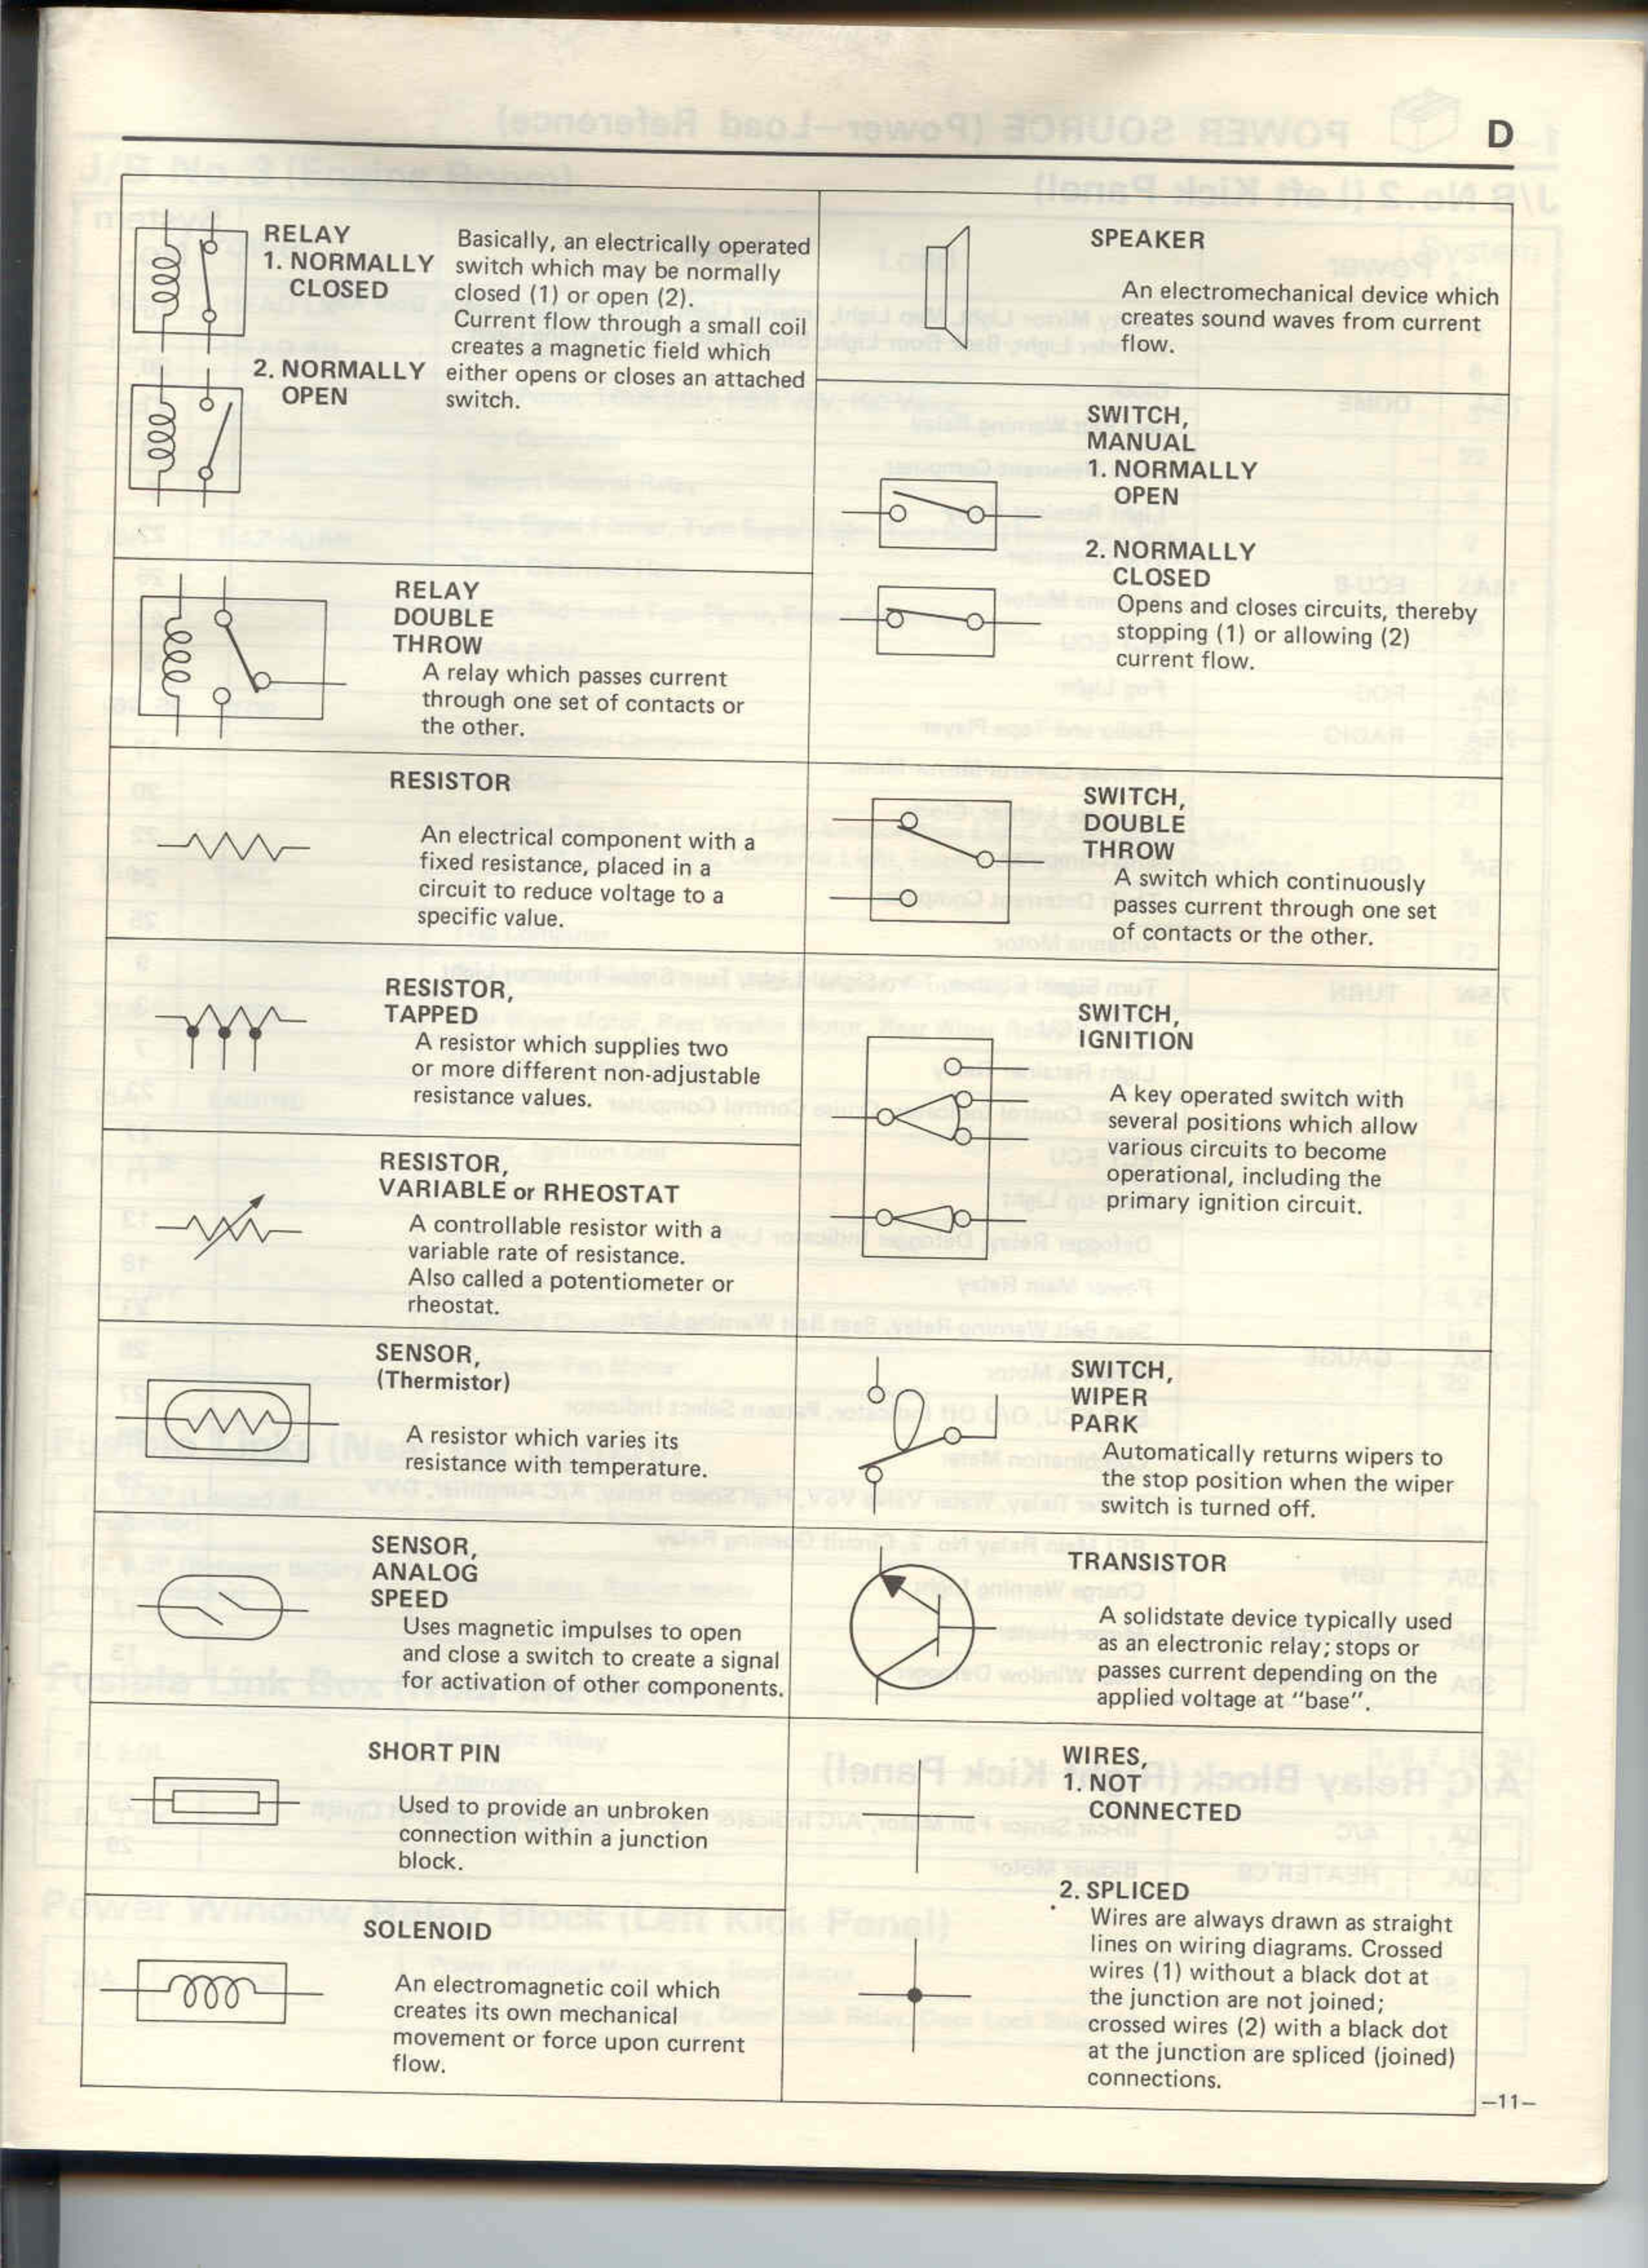 D
RELAY
1. NORMALLY
CLOSED
2. NORMALLY
OPEN
Basically, an electrically operated
switch which may be normally
closed (1) or open (2).
Current flow through a small coil
creates a magnetic field which
either opens or closes an attached
switch.
RELAY
DOUBLE
THROW
A relay which passes current
through one set of contacts or
the other.
RESISTOR
An electrical component with a
fixed resistance, placed in a
circuit to reduce voltage to a
specific value.
RESISTOR,
TAPPED
A resistor which supplies two
or more different non-adjustable
resistance values.
RESISTOR,
VARIABLE or RHEOSTAT
A controllable resistor with a
variable rate of resistance.
Also called a potentiometer or
rheostat.
SENSOR,
(Thermistor)
A resistor which varies its
resistance with temperature.
SENSOR,
ANALOG
SPEED
Uses magnetic impulses to open
and close a switch to create a signal
for activation of other components.
SHORT PIN
Used to provide an unbroken
connection within a junction
block.
SOLENOID
An electromagnetic coil which
creates its own mechanical
movement or force upon current
flow.
SPEAKER
An electromechanical device which
creates sound waves from current
flow.
SWITCH,
MANUAL
1. NORMALLY
OPEN
2. NORMALLY
CLOSED
Opens and closes circuits, thereby
stopping (1) or allowing (2)
current flow.
SWITCH,
DOUBLE
THROW
A switch which continuously
passes current through one set
of contacts or the other.
SWITCH,
IGNITION
A key operated switch with
several positions which allow
various circuits to become
operational, including the
primary ignition circuit.
SWITCH,
WIPER
PARK
Automatically returns wipers to
the stop position when the wiper
switch is turned off.
TRANSISTOR
A solidstate device typically used
as an electronic relay; stops or
passes current depending on the
applied voltage at "base".
WIRES,
1. NOT
CONNECTED
2. SPLICED
Wires are always drawn as straight
lines on wiring diagrams. Crossed
wires (1) without a black dot at
the junction are not joined;
crossed wires (2) with a black dot
at the junction are spliced (joined)
connections.
—11—